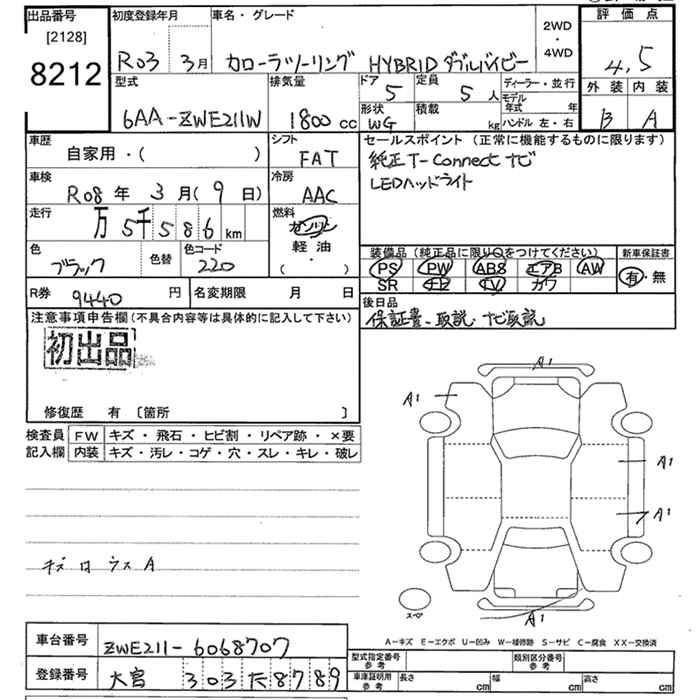 出品番号 初度登録年月 車名・グレード 2WD・4WD 評価点
[2128]
8212 R03 3月 カローラツーリング HYBRID ダブルバイビー 4.5
型式 排気量 ドア 5 定員 5人 ディーラー・並行 外装 内装
6AA-ZWE211W 1800cc 形状 WG 積載 kg モデル年式 年 ハンドル 左・右 B A
車歴 自家用・( ) シフト FAT セールスポイント(正常に機能するものに限ります)
車検 R08年 3月(9日) 冷房 AAC 純正T-Connectナビ
LEDヘッドライト
走行 万5千586km 燃料 ガソリン 軽油・( )
色 ブラック 色替 色コード 220
装備品(純正品に限り○をつけてください) 新車保証書
PS PW ABS エアB AW 有・無
SR ナビ TV カワ
R券 9440円 名変期限 月 日
後日品
保証書、取説・ナビ取説
注意事項申告欄(不具合内容等は具体的に記入して下さい)
初出品
修復歴 有 〔箇所 〕
検査員 FW キズ・飛石・ヒビ割・リペア跡・×要
記入欄 内装 キズ・汚レ・コゲ・穴・スレ・キレ・破レ
A1
A1
A1
A1
A1
スペア
A-キズ E-エクボ U-凹み W-補修跡 S-サビ C-腐食 XX-交換済
車台番号 ZWE211-6068707
登録番号 大宮 303 た 8789
型式指定番号 参考 類別区分番号 参考
車庫証明用 参考 長さ cm 幅 cm 高さ cm